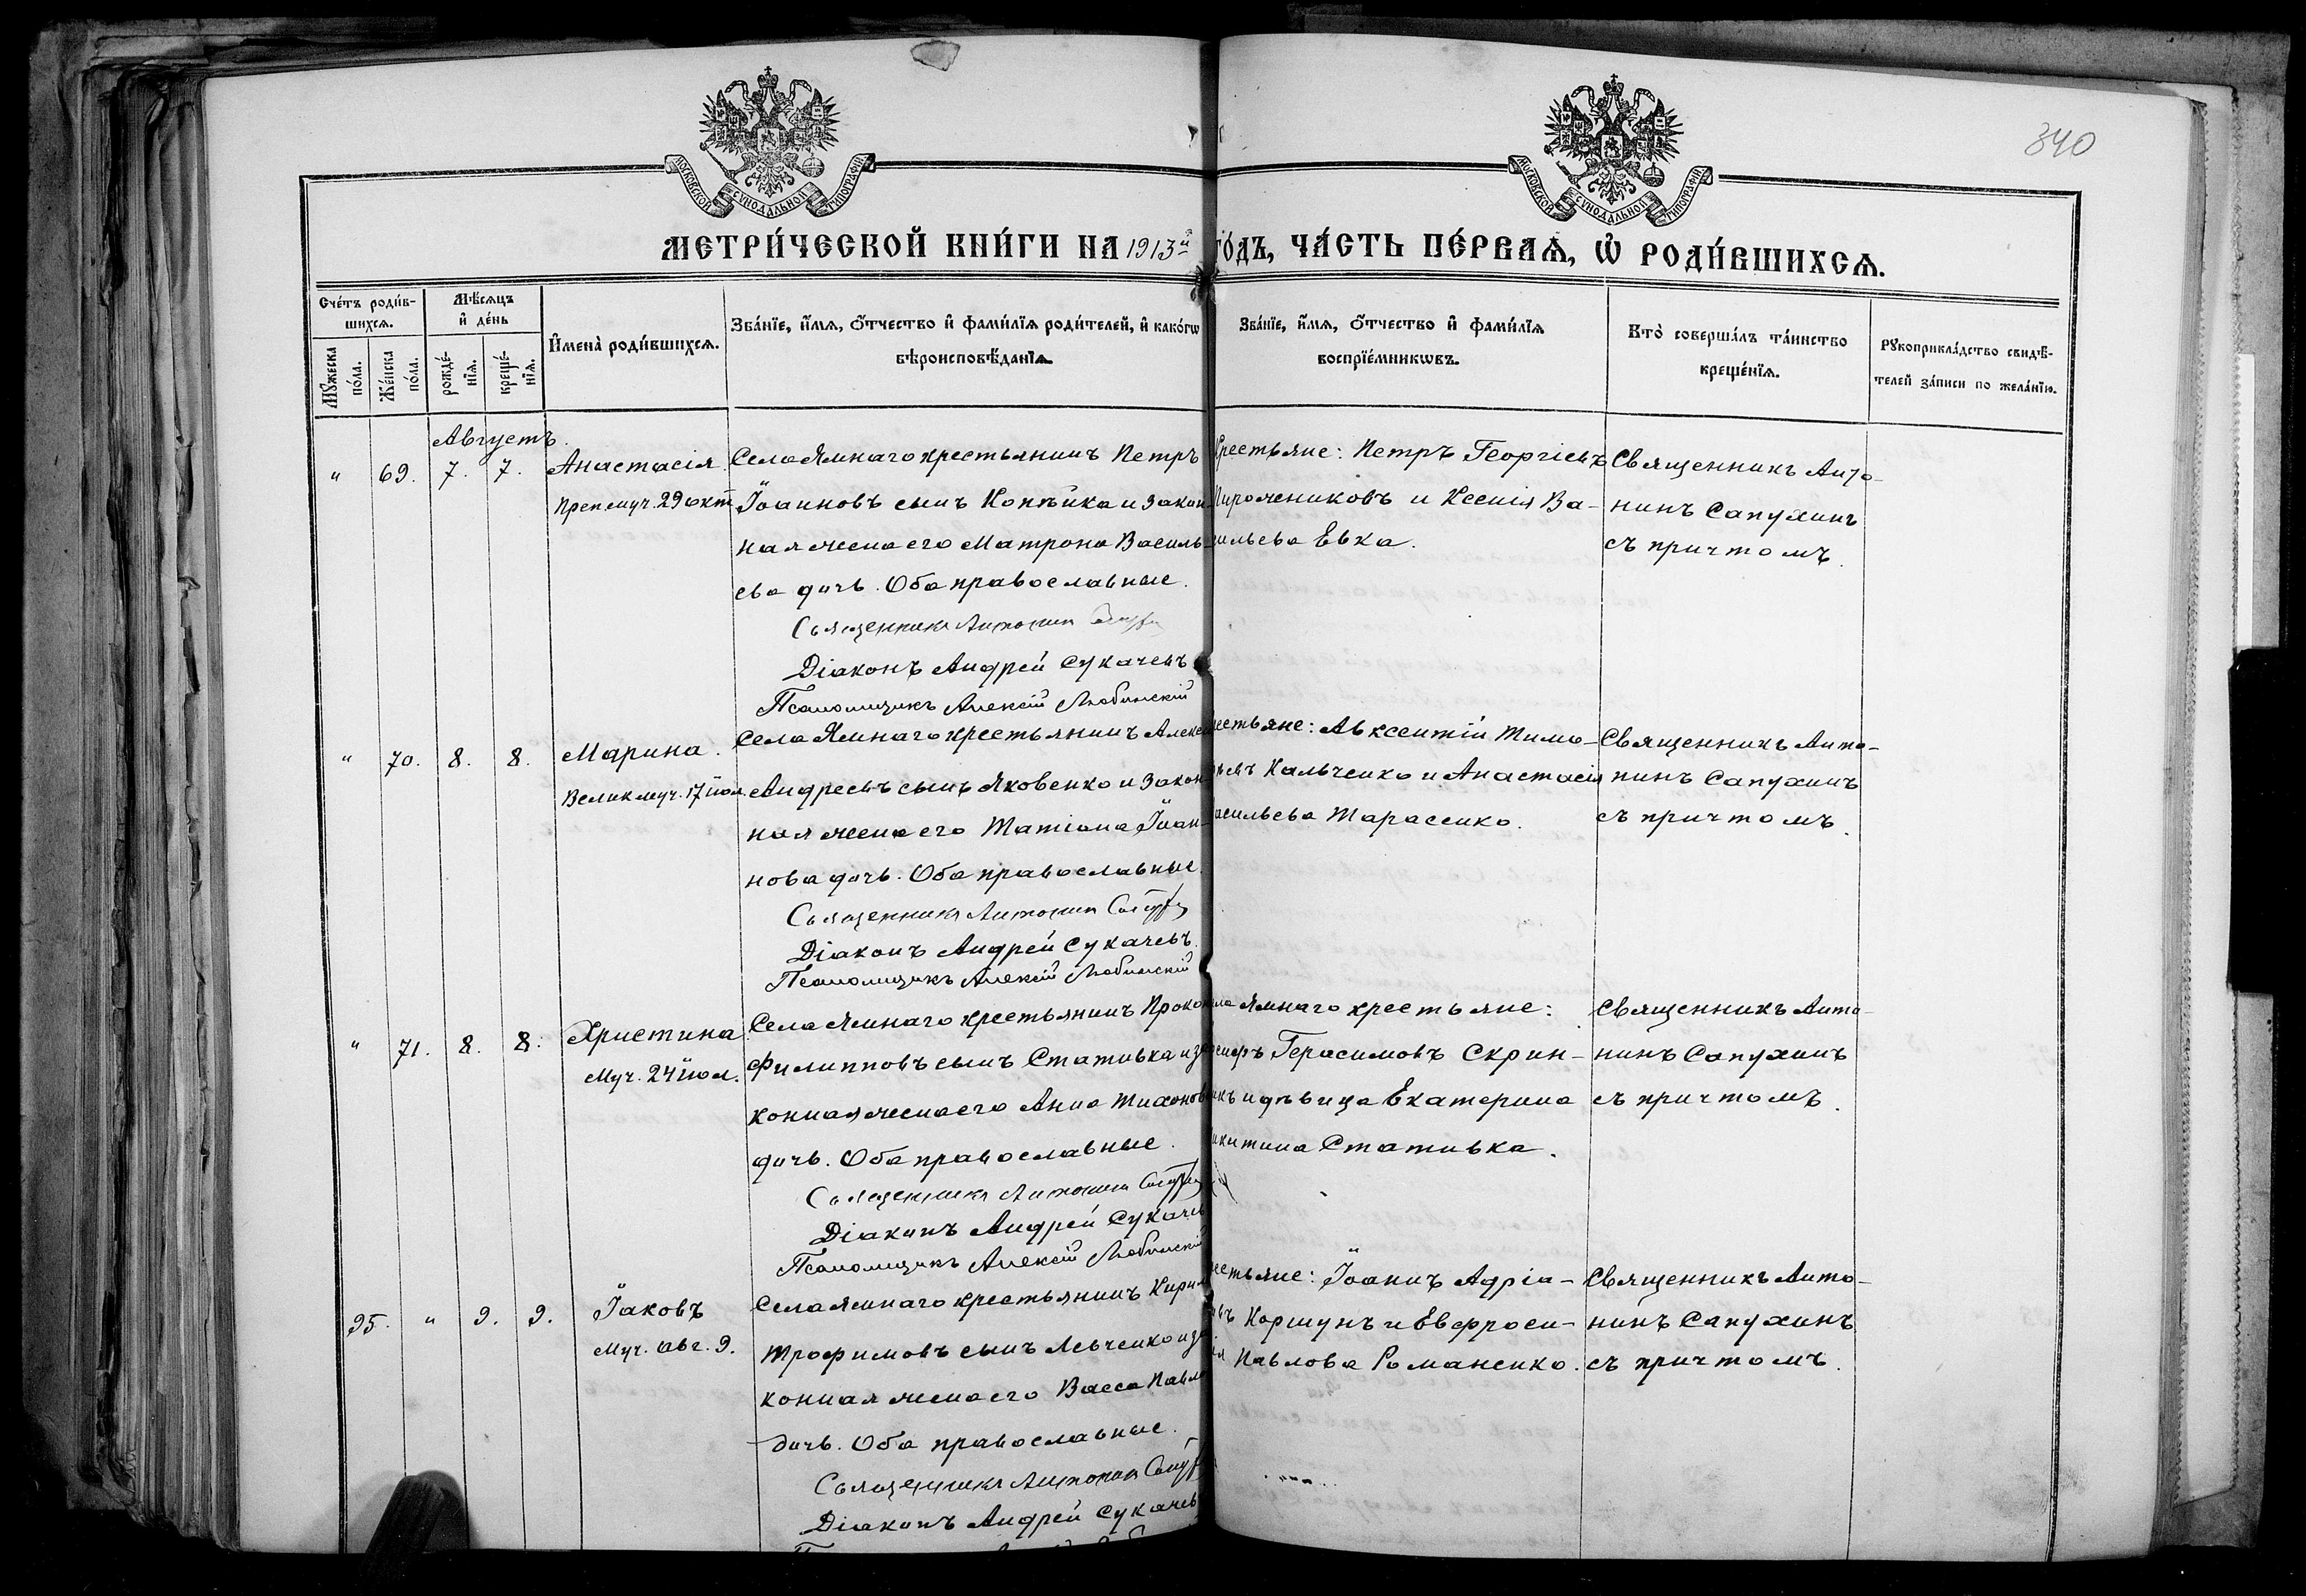 340
МОСКОВСКОЙ СѴНОДАЛЬНОЙ ТИПОГРАФІИ
МОСКОВСКОЙ СѴНОДАЛЬНОЙ ТИПОГРАФІИ
МЕТРИ́ЧЕСКОЙ КНИ́ГИ НА 1913й ГО́ДЪ, ЧА́СТЬ ПЕ́РВАѦ, Ѽ РОДИ́ВШИХСѦ.
Сче́тъ роди́в-
шихсѧ.
Мꙋ́жеска по́ла.
Же́нска по́ла.
Мѣ́сѧцъ и҆ де́нь
рожде́-
нїѧ.
креще́-
нїѧ.
И҆мена̀ роди́вшихсѧ.
Зва́нїе, и҆́мѧ, ѻ҆́тчество и҆ фами́лїѧ роди́телей, и҆ како́гѡ
вѣроисповѣ́данїѧ.
Зва́нїе, и҆́мѧ, ѻ҆́тчество и҆ фами́лїѧ
воспрїе́мникѡвъ.
Кто̀ соверша́лъ та́инство
креще́нїѧ.
Рꙋкоприкла́дство свидѣ́-
телей за́писи по жела́нїю.
Августъ.
" 69. 7. 7. Анастасія
Преп.муч. 29 окт.
Села Ямнаго крестьянинъ Петръ
Іоанновъ сынъ Копѣйка и закон-
ная жена его Матрона Василь-
ева дочь. Оба православные.
Священникъ Антонинъ
Діаконъ Андрей Сукачевъ
Псаломщикъ Алексій Любинскій
Крестьяне: Петръ Георгіевъ
Пирожениковъ и Ксенія Ва-
сильева Евка.
Священникъ Анто-
нинъ Сапухинъ
съ причтомъ.
" 70. 8. 8. Марина.
Великмуч. 17 іюл.
Села Ямнаго крестьянинъ
Андреевъ сынъ Яковенко и закон-
ная жена его Татіана Іоан-
нова дочь. Оба православные.
Священникъ Антонинъ
Діаконъ Андрей Сукачевъ.
Псаломщикъ Алексій Любинскій
Крестьяне: Авксентій Тимо-
Кальченко и Анастасія
Васильева Тарасенко.
Священникъ Анто-
нинъ Сапухинъ
съ причтомъ.
" 71. 8. 8. Христина
Муч. 24 іюл.
Села Ямнаго крестьянинъ
Филипповъ сынъ Стативка и за-
конная жена его Анна Тихонов
дочь. Оба православные.
Священникъ Антонинъ
Діаконъ Андрей Сукачев
Псаломщикъ Алексій Любинскій
Ямнаго крестьяне:
Герасимовъ Скрин-
никъ и дѣвица Екатерина
Никитина Стативка.
Священникъ Анто-
нинъ Сапухинъ
съ причтомъ.
95. " 9. 9. Іаковъ
Муч. авг. 9.
Села Ямнаго крестьянинъ Кирил
Трофимовъ сынъ Левченко и за
конная жена его Васса Павло
дочь. Оба православные.
Священникъ Антонинъ
Діаконъ Андрей Сукачев
Крестьяне: Іоаннъ Адріа-
Коршунъ и Евфроси-
Павлова Романенко.
Священникъ Анто-
нинъ Сапухинъ
съ причтомъ.